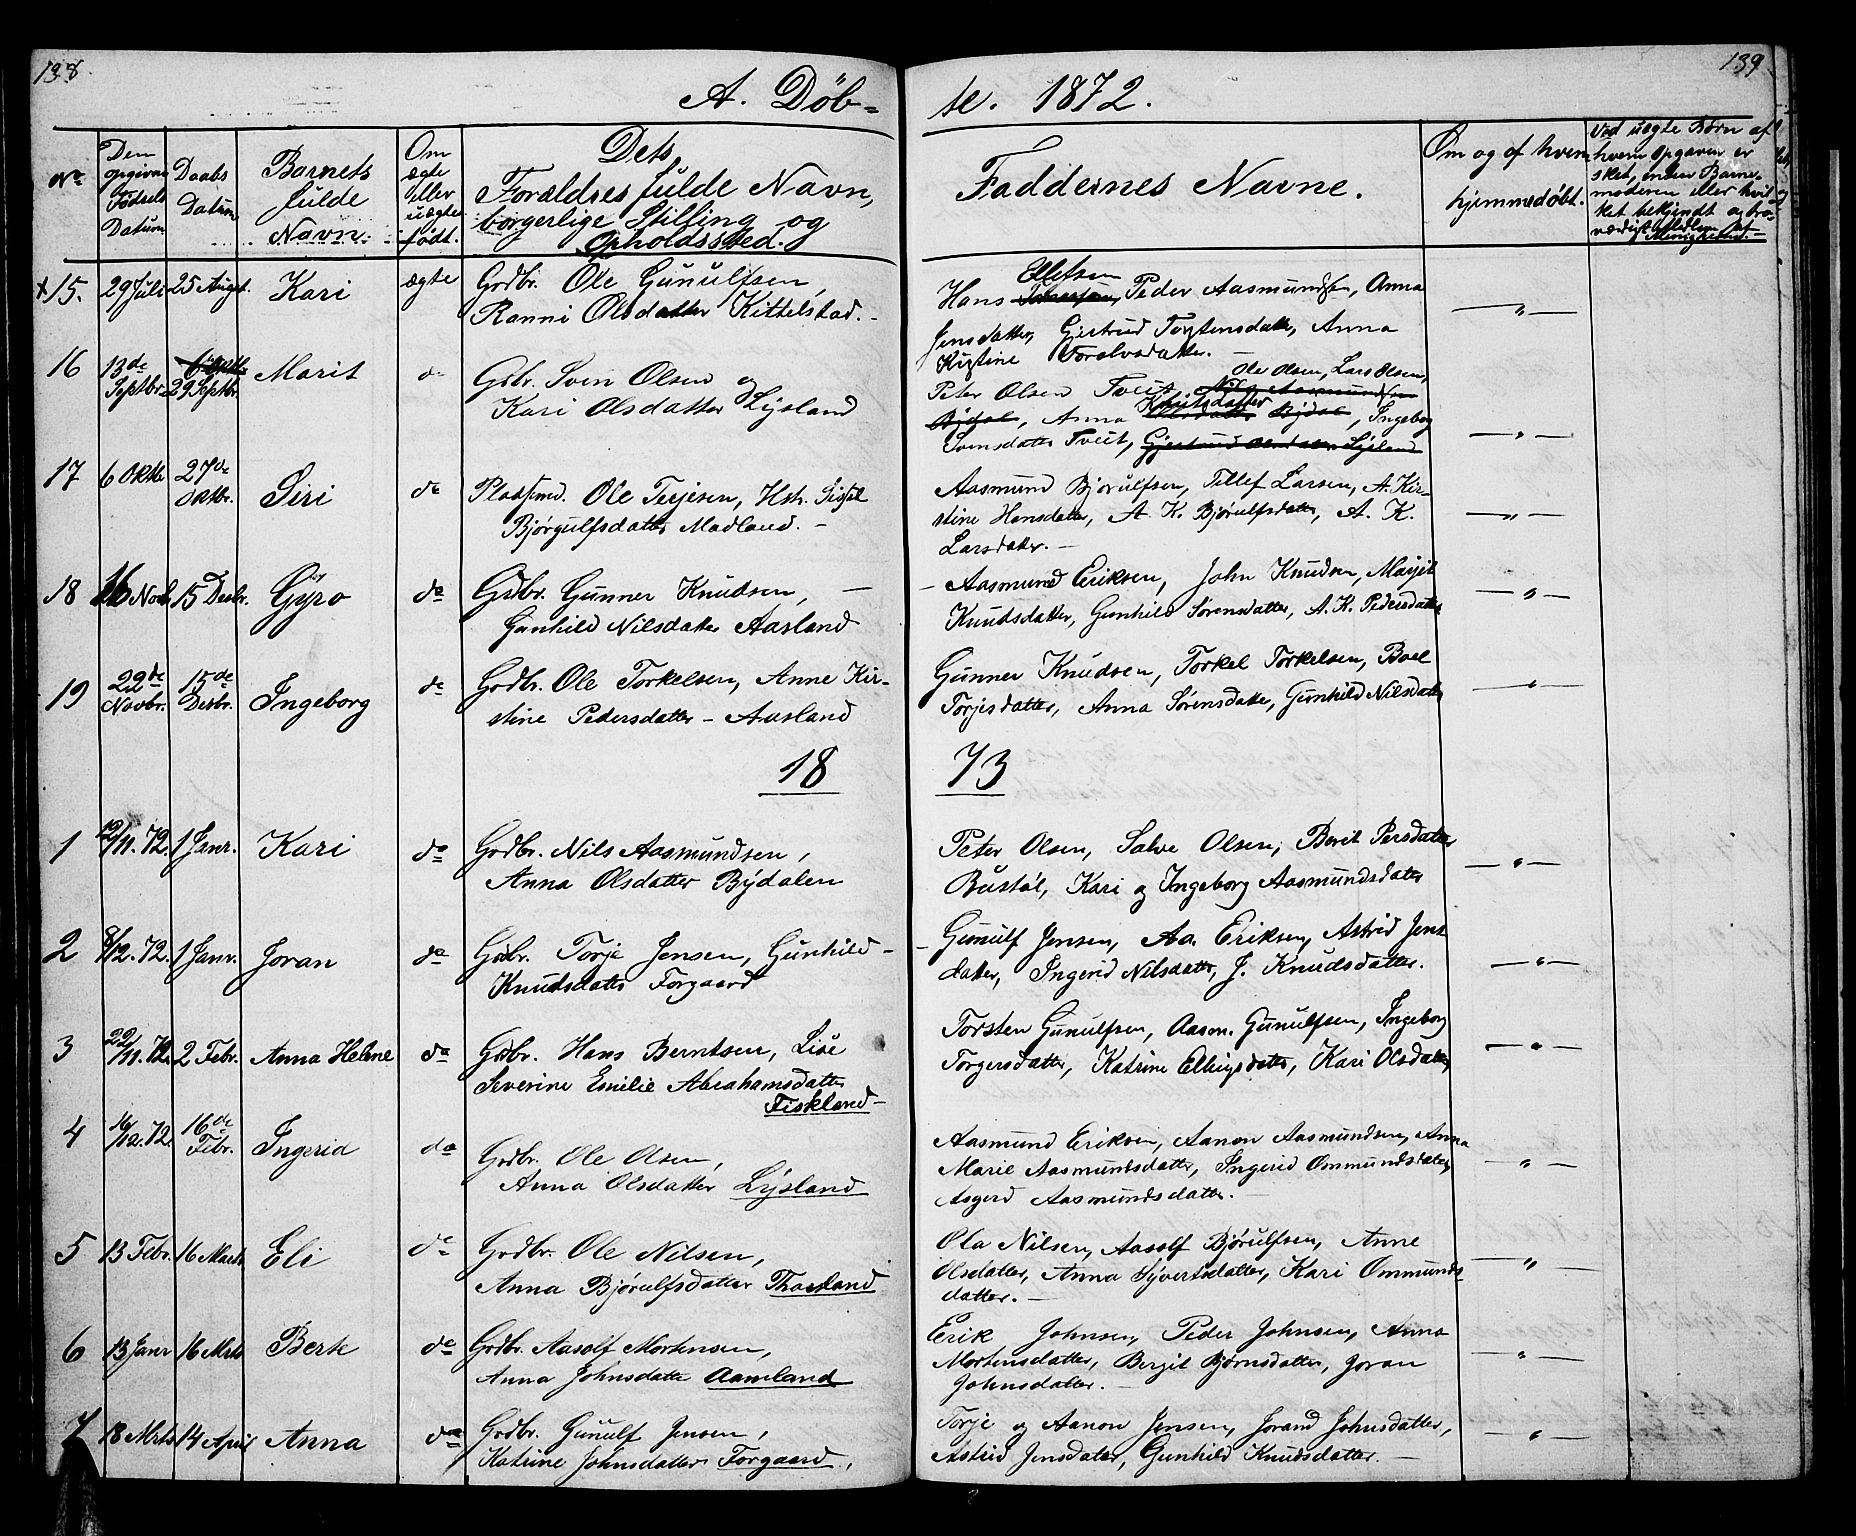 138.
139
A. Döb-
te. 1872.
No
Den opgivne Födsels Datum
Daabs Datum
Barnets fulde Navn.
Om ægte eller uægte födt.
Dets Forældres fulde Navn, borgerlige Stilling og Opholdssted.
Faddernes Navne.
Om og af hvem hjemmedöbt.
Ved uægte Börn af hvem Opgaven er sket, enten Barnemoderen eller hvilket bekjendt og troværdigt Medlem af Menigheden.
+15. 29 Juli 25 August. Kari ægte Grdbr. Ole Gunulfsen,
Ranni Olsdatter Kittelstad. -
Ellefsen
Hans Peder Aasmundsen, Anna
Jensdatter, Gjertrud Torstensdatter, Anna
Kirstine Toralvsdatter. -
16 13de Septbr. 29 Septbr. Marit do Grdbr. Sven Olsen og
Kari Olsdatter Lysland
Ole Olsen, Lars Olsen,
Peter Olsen Tveit, Nils Aasmundsen
Bydal, Anna Knutsdatter Bydal, Ingeborg
Svensdatter Tveit, Gjertrud Lysland
17 6 Oktbr. 27de Oktbr. Siri do Pladsmd. Ole Terjesen, Hstr. Sissel
Bjørgulfsdatter Madland. -
Aasmund Bjorulfsen, Tellef Larsen, A. Kir-
stine Hansdatter, A. K. Bjørulfsdatter, A. K.
Larsdatter. -
18 16 Novb. 15 Desbr. Gyro do Grdbr. Gunner Knudsen, -
Gunhild Nilsdatter Aasland
- Aasmund Eriksen, John Knudsen, Margit
Knudsdatter, Gunhild Sørensdatter, A. K. Pedersdatter
19 22de Novbr. 15de Desbr. Ingeborg do Grdbr. Ole Torkelsen, Anne Kir-
stine Pedersdatter - Aasland
Gunner Knudsen, Torkel Torkelsen, Boel
Torjisdatter, Anna Sørensdatter, Gunhild Nilsdatter
18 73
1 12/11. 72. 1 Janr. Kari do Grdbr. Nils Aasmundsen,
Anna Olsdatter Bydalen
Peter Olsen, Salve Olsen, Berit Persdatter
Bustøl, Kari og Ingeborg Aasmundsdatter
2 8/12. 72. 1 Janr. Joran do Grdbr. Torje Jensen, Gunhild -
Knudsdatter Forgaard
- Gunulf Jensen, Aa. Eriksen, Astrid Jens
datter, Ingerid Nilsdatter, J. Knudsdatter.
3 22/11. 72. 2 Febr. Anna Helene do Grdbr. Hans Berntsen, Lise
Severine Emilie Abrahamsdatter
Fiskland -
Torsten Gunulfsen, Aasm. Gunulfsen, Ingeborg
Torgersdatter, Katrine Ellingsdatter, Kari Olsdatter
4 16/12. 72. 16de Febr. Ingerid do Grdbr. Ole Olsen,
Anna Olsdatter Lysland
Aasmund Eriksen, Aanon Aasmundsen, Anna
Marie Aasmundsdatter, Ingerid Ommundsdatter,
Asgerd Aasmundsdatter. -
5 13 Febr. 16 Marts Eli do Grdbr. Ole Nilsen,
Anna Bjørulfsdatter Thorsland
Ola Nilsen, Aasolf Bjørulfsen, Anne
Olsdatter, Anna Syvertsdatter, Kari Ommunds-
datter. -
6 13 Janr 16 Mrts Berte do Grdbr. Aasolf Mortensen,
Anna Johnsdatter Aamland
Erik Johnsen, Peder Johnsen, Anna
Mortensdatter, Bergit Bjørnsdatter, Joran
Johnsdatter. -
7 18 Mrts 14 April Anna do Grdbr. Gunulf Jensen,
Katrine Johnsdatter Forgaard.
Torje og Aanon Jensen, Jorand Johnsdatter,
Astrid Jensdatter, Gunhild Knudsdatter. -